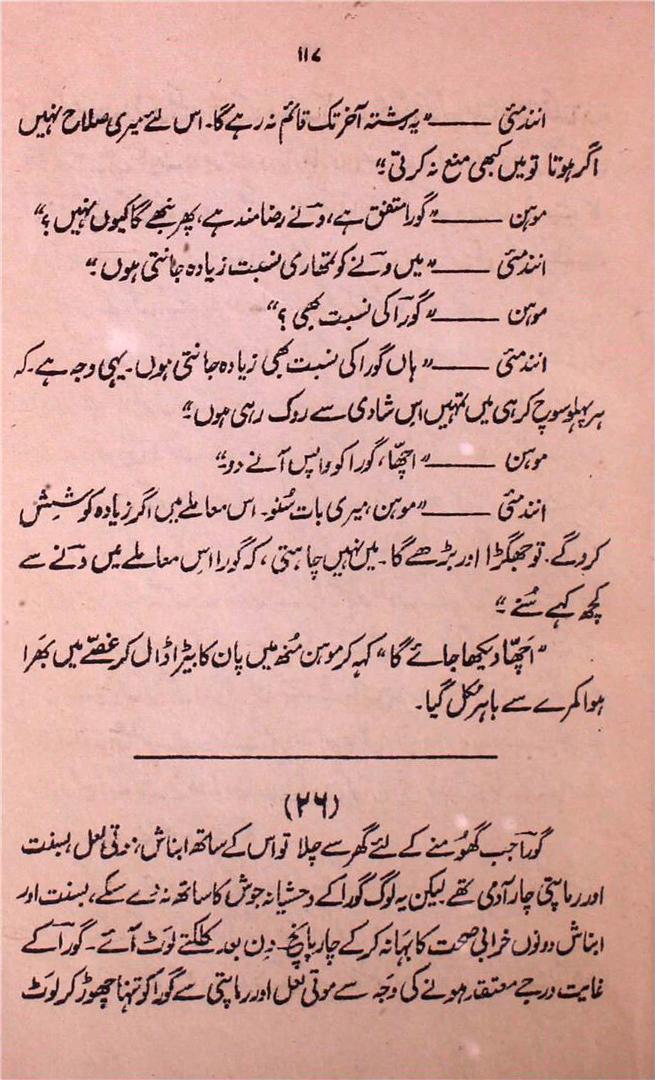 ۱۱۷
انند مئی ——— "یہ رشتہ آخر تک قائم نہ رہے گا۔ اس لئے میری صلاح نہیں
اگر ہوتا تو میں کبھی منع نہ کرتی۔"
موہن ——— "گورا متفق ہے، ونے رضامند ہے، پھر نبھے گا کیوں نہیں؟"
انند مئی ——— "میں ونے کو تمھاری نسبت زیادہ جانتی ہوں۔"
موہن ——— "گورا کی نسبت بھی؟"
انند مئی ——— "ہاں گورا کی نسبت بھی زیادہ جانتی ہوں۔ یہی وجہ ہے۔ کہ
ہر پہلو سوچ کر ہی میں تمہیں اس شادی سے روک رہی ہوں۔"
موہن ——— "اچھّا، گورا کو واپس آنے دو۔"
انند مئی ——— "موہن، میری بات سُنو۔ اس معاملے میں اگر زیادہ کوشِش
کروگے۔ تو جھگڑا اور بڑھے گا۔ میں نہیں چاہتی، کہ گورا اس معاملے میں ونے سے
کچھ کہے سُنے۔"
"اچھّا دیکھا جائے گا" کہہ کر موہن منھ میں پان کا بیڑا ڈال کر غصّے میں بھرا
ہوا کمرے سے باہر نکل گیا۔
(۲۶)
گورا جب گھومنے کے لئے گھر سے چلا تو اس کے ساتھ ابناش، موتی لعل، بسنت
اور رماپتی چار آدمی تھے لیکن یہ لوگ گورا کے وحشیانہ جوش کا ساتھ نہ دے سکے، بسنت اور
ابناش دونوں خرابی صحت کا بہانہ کر کے چار پانچ۔ دِن بعد کلکتے لوٹ آئے۔ گورا کے
غایت درجے معتقد ہونے کی وَجہ سے موتی لعل اور رماپتی سے گورا کو تنہا چھوڑ کر لوَٹ